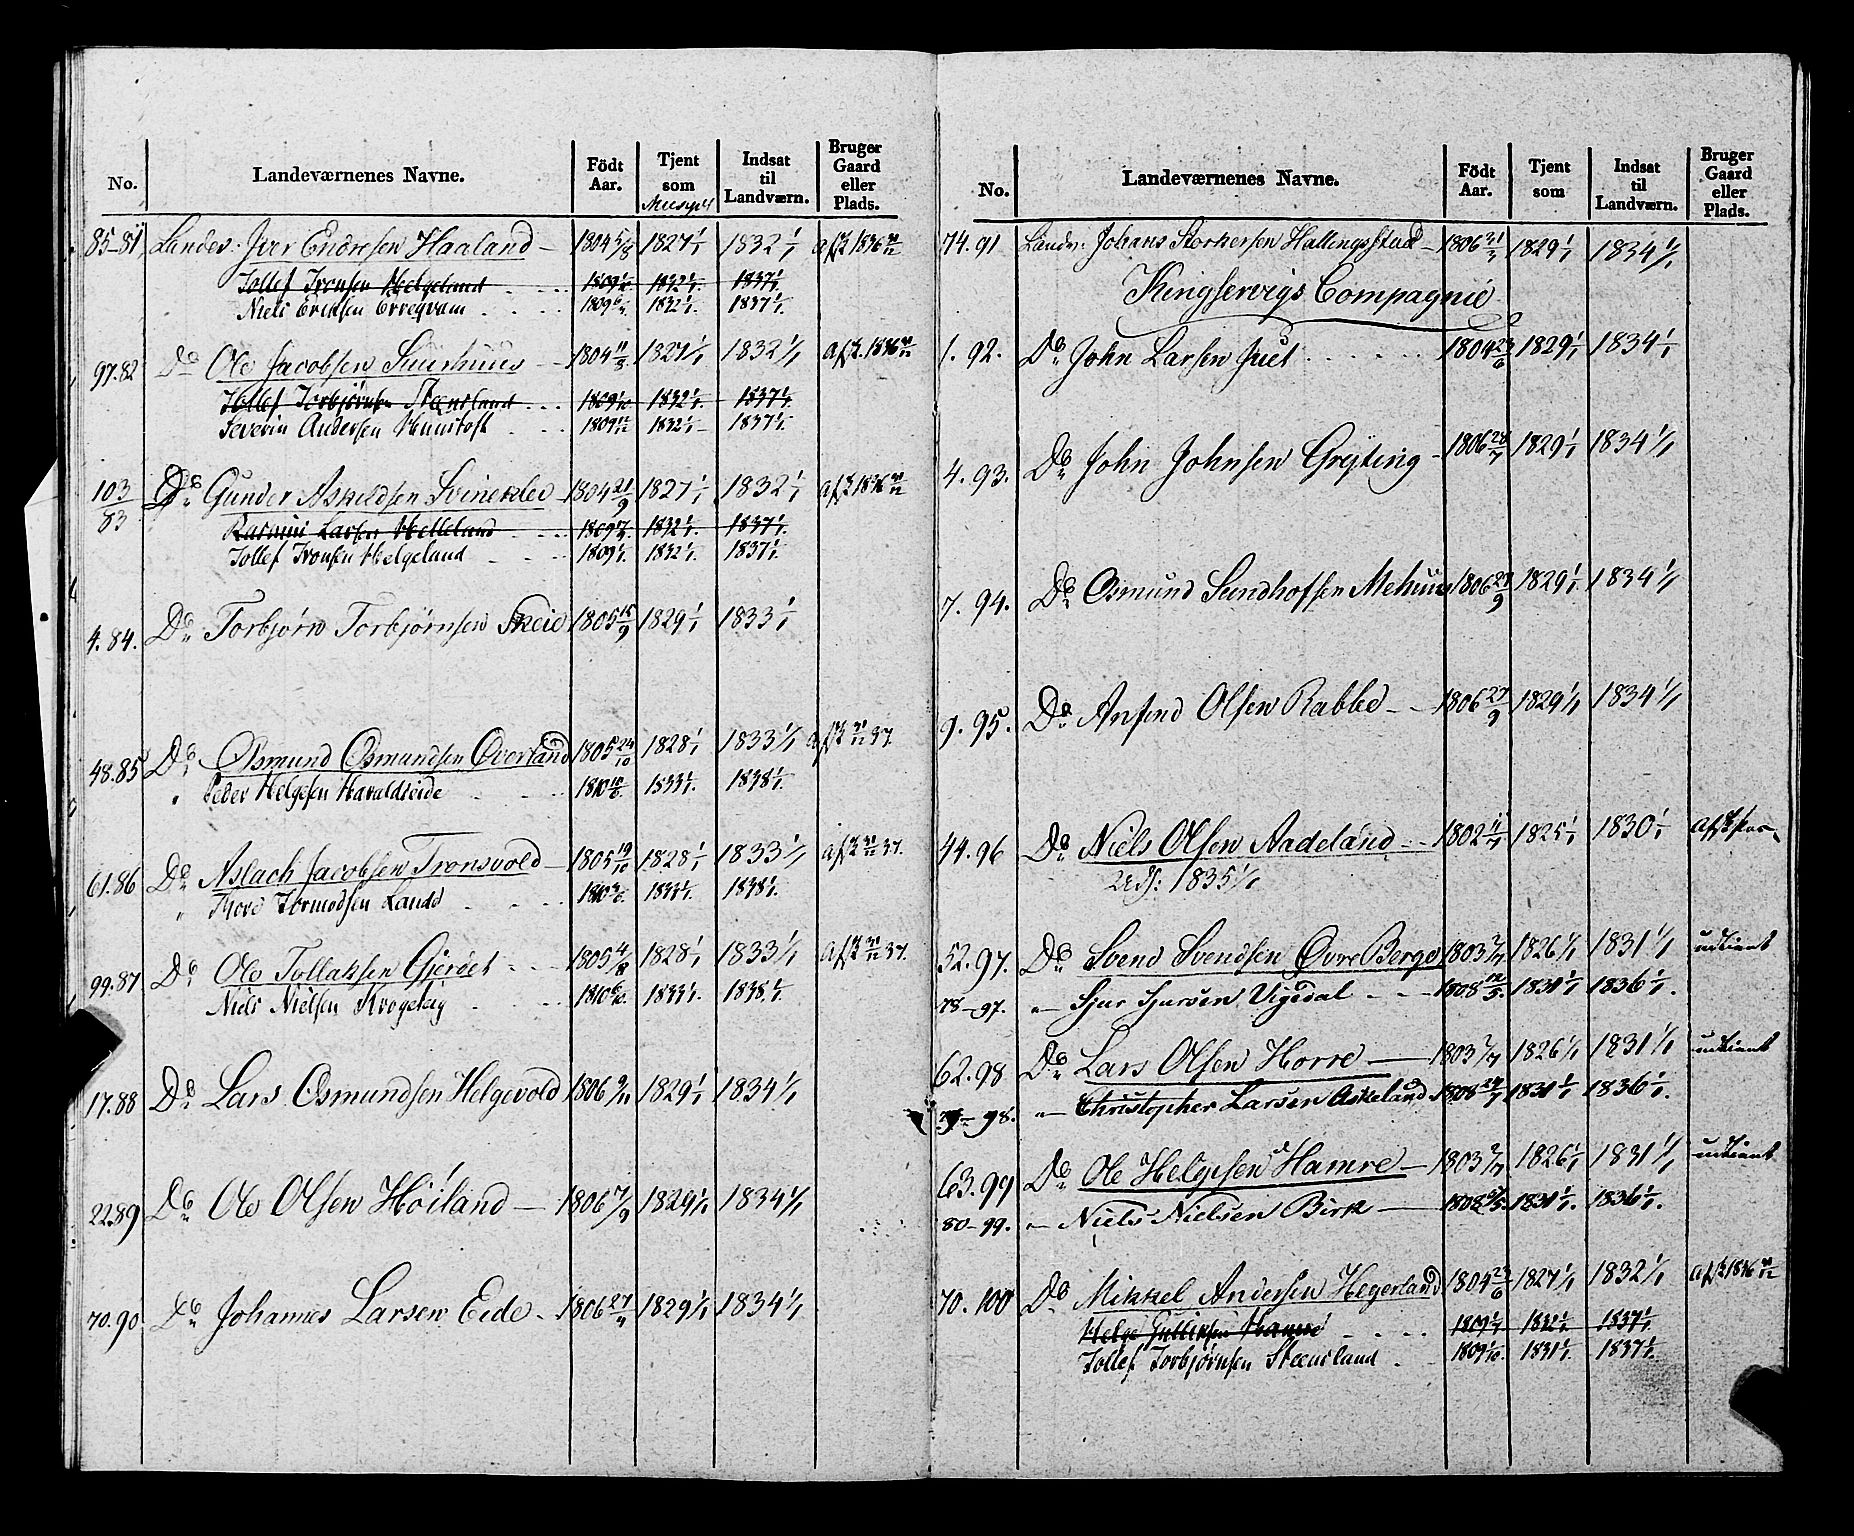 No. Landeværnenes Navne. Födt Aar. Tjent som Indsat til Landværn. Bruger Gaard eller Plads.
85-81 Landev. Iver Endresen Haaland 1804 5/8 1827 1/1 1832 1/1 afsk 1836 31/12
Tollef Tronsen Helgeland 1809 1832 1/1 1837 1/1
Niels Eriksen Erreqvam 1809 1832 1/1 1837 1/1
97.82 Do Ole Jacobsen Stuerhuus 1804 11/3 1827 1/1 1832 1/1 afsk. 1836 31/12
Tollef Torbjørnsen Steensland 1809 1/10 1832 1/1 1837 1/1
Severin Andersen 1809 1832 1/1 1837 1/1
103/83 Do Gunder Askildsen Svineklev 1804 21/9 1827 1/1 1832 1/1 afsk 1836 31/12
Rasmus Larsen Helleland 1809 1832 1/1 1837 1/1
Tollef Tronsen Helgeland 1809 1832 1/1 1837 1/1
4.84. Do Torbjørn Torbjørnsen Skeie 1805 15/9 1829 1/1 1833 1/1
48.85 Do Osmund Osmundsen Overland 1805 24/10 1828 1/1 1833 1/1 afsk 31/12 37.
" Peder Helgesen Haraldseide 1810 1833 1/1 1838 1/1
61.86 Do Aslach Jacobsen Tronsvold 1805 19/10 1828 1/1 1833 1/1 afsk 31/12 37.
" Thore Tormodsen Lande 1810 1833 1/1 1838 1/1
99.87 Do Ole Tollaksen Gjerøet 1805 4/8 1828 1/1 1833 1/1 afsk 31/12 37.
Niels Nielsen 1810 1833 1/1 1838 1/1
17.88 Do Lars Osmundsen Helgevold 1806 1829 1/1 1834 1/1
22.89 Do Ole Olsen Höiland 1806 7/9 1829 1/1 1834 1/1
70.90 Do Johannes Larsen Eide 1806 27/11 1829 1/1 1834 1/1
No. Landeværnenes Navne. Födt Aar. Tjent som Indsat til Landværn. Bruger Gaard eller Plads.
74.91 Landv: Johans Storkersen Hallingstad 1806 21/7 1829 1/1 1834 1/1
Kingservigs Compagnie
1.92. Do John Larsen Juel 1804 23/6 1829 1/1 1834 1/1
4.93. Do John Johnsen Grÿting 1806 28/7 1829 1/1 1834 1/1
7.94. Do Osmund Sundhofsen Mehuus 1806 27/9 1829 1/1 1834 1/1
9.95. Do Anfend Olsen Rabbe 1806 27/9 1829 1/1 1834 1/1
44.96 Do Niels Olsen Aadeland 1802 11/7 1825 1/1 1830 1/1
Uds: 1835 1/1
52.97. Do Svend Svendsen Øvre Berge 1803 2/7 1826 1/1 1831 1/1 udtient
78-97. " Sjur Sjursen Vigedal 1808 12/5. 1831 1/1 1836 1/1.
62.98 Do Lars Olsen Horre 1803 2/7 1826 1/1 1831 1/1 udtient
98. " Christopher Larsen Askeland 1808 24/7 1831 1/1 1836 1/1.
63.99 Do Ole Helgesen Hamre 1803 2/7 1826 1/1 1831 1/1 udtient
80-99. " Niels Nielsen Birk 1808 1831 1/1. 1836 1/1.
70.100 Do Mikkel Andersen Hegerland 1804 23/6 1827 1/1 1832 1/1 afsk 1836 31/12
Helge Hamre 1809 1832 1/1 1837 1/1
Tollef Torbjørnsen Steensland 1809 1/10. 1831 1/1. 1837 1/1.